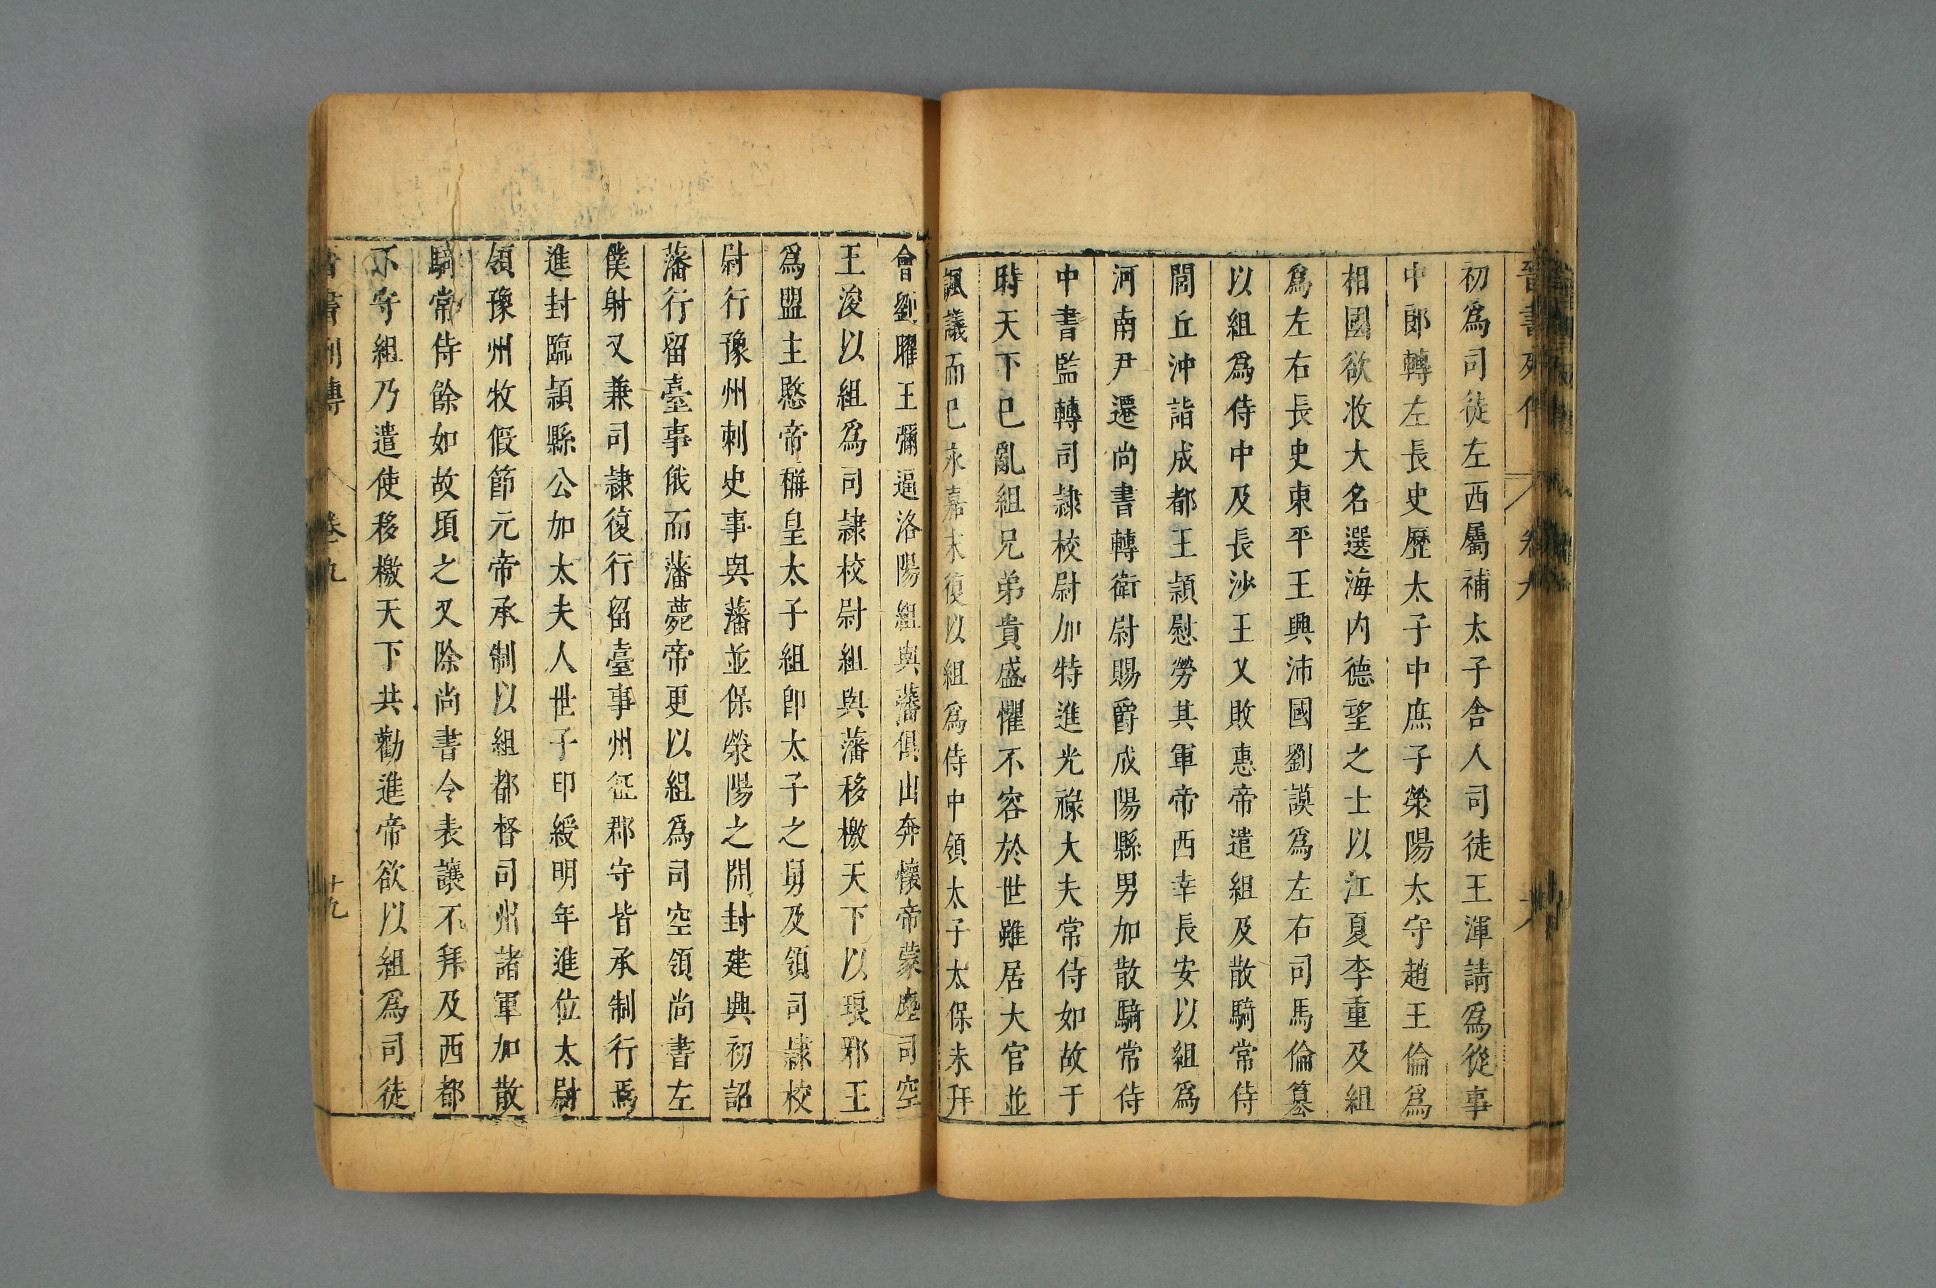 晉書列傳 卷九 十八
初爲司徒左西屬補太子舍人司徒王渾請爲從事
中郎轉左長史歷太子中庶子滎陽太守趙王倫爲
相國欲收大名選海內德望之士以江夏李重及組
爲左右長史東平王興沛國劉謨爲左右司馬倫篡
以組爲侍中及長沙王乂敗惠帝遣組及散騎常侍
閭丘沖詣成都王頴慰勞其軍帝西幸長安以組爲
河南尹遷尚書轉衛尉賜爵成陽縣男加散騎常侍
中書監轉司隷校尉加特進光祿大夫常侍如故于
時天下已亂組兄弟貴盛懼不容於世雖居大官並
諷議而已永嘉末復以組爲侍中領太子太保未拜
會劉曜王彌逼洛陽組與藩俱出奔懷帝蒙塵司空
王浚以組爲司隷校尉組與藩移檄天下以琅邪王
爲盟主愍帝稱皇太子組卽太子之舅及領司隷校
尉行豫州刺史事與藩並保滎陽之開封建興初詔
藩行留臺事俄而藩薨帝更以組爲司空領尚書左
僕射又兼司隷復行留臺事州征郡守皆承制行焉
進封臨頴縣公加太夫人世子印綬明年進位太尉
領豫州牧假節元帝承制以組都督司州諸軍加散
騎常侍餘如故頃之又除尚書令表讓不拜及西都
不守組乃遣使移檄天下共勸進帝欲以組爲司徒
晉書列傳 卷九 十九